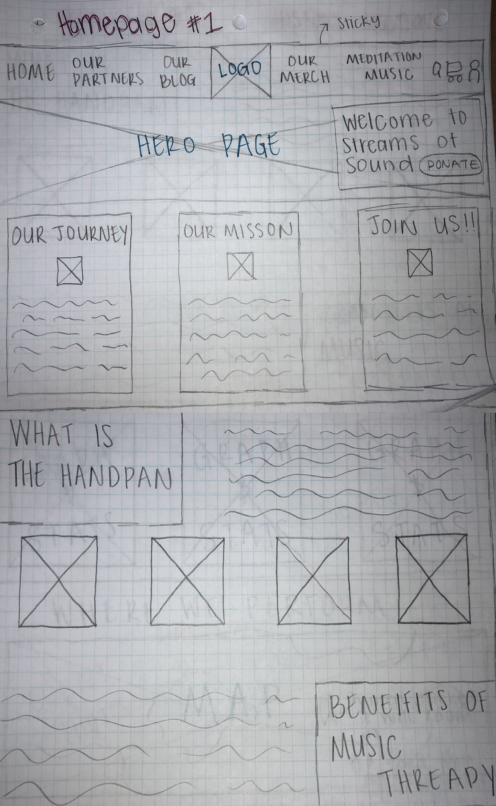 Homepage #1
Sticky
HOME
OUR
PARTNERS
OUR
BLOG
LOGO
OUR
MERCH
MEDITATION
MUSIC
HERO PAGE
Welcome to
Streams of
Sound DONATE
OUR JOURNEY
OUR MISSON
JOIN US!!
WHAT IS
THE HANDPAN
STATS
STATS
MAP
BENEIFITS OF
MUSIC
THREADY